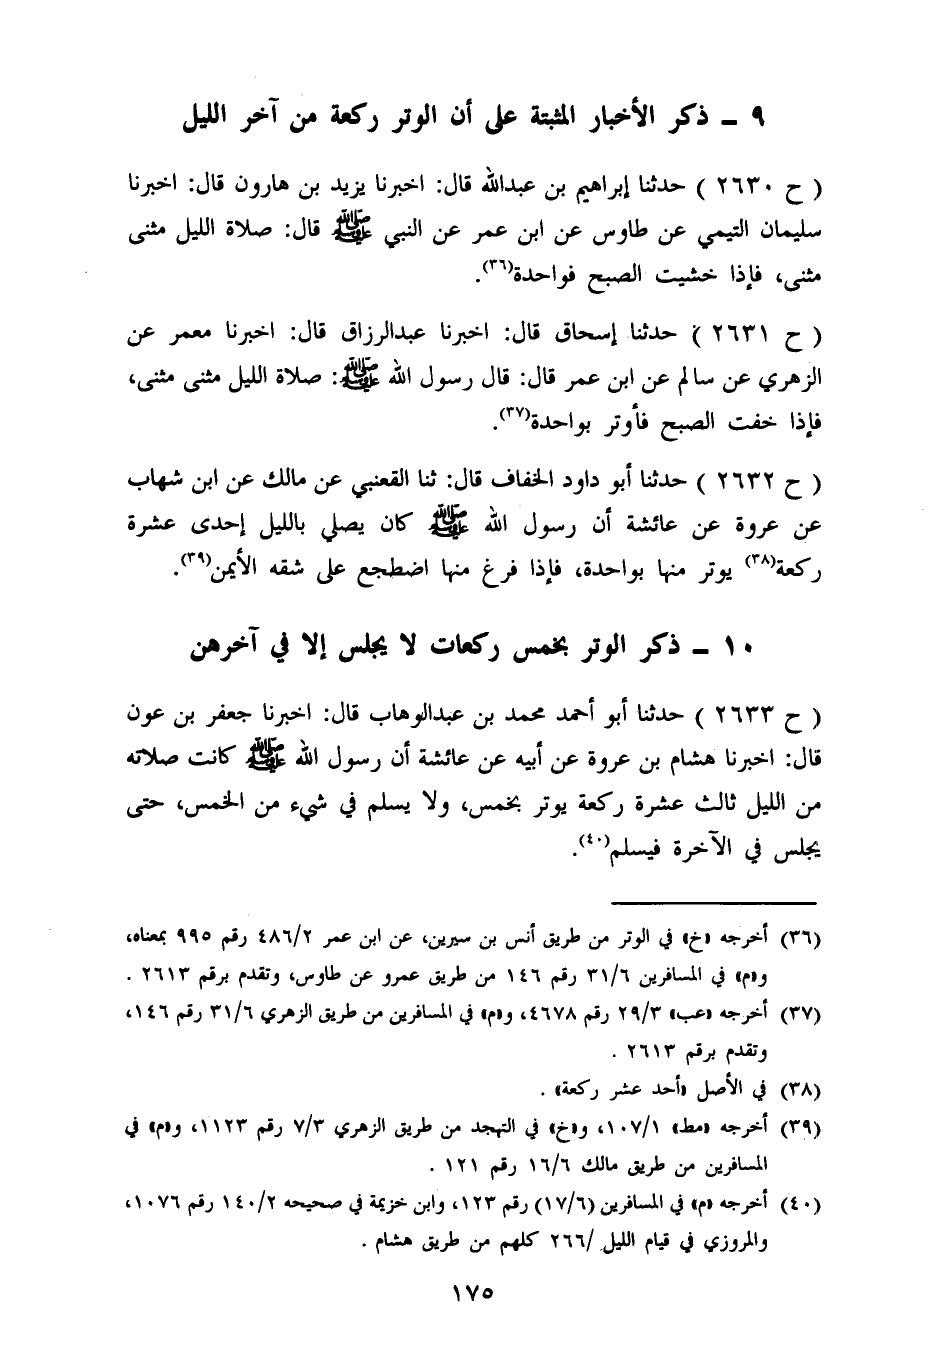 ٩ ـ ذكر الأخبار المثبتة على أن الوتر ركعة من آخر الليل
( ح ٢٦٣٠ ) حدثنا إبراهيم بن عبدالله قال: اخبرنا يزيد بن هارون قال: اخبرنا
سليمان التيمي عن طاوس عن ابن عمر عن النبي ﷺ قال: صلاة الليل مثنى
مثنى، فإذا خشيت الصبح فواحدة(٣٦).
( ح ٢٦٣١ ) حدثنا إسحاق قال: اخبرنا عبدالرزاق قال: اخبرنا معمر عن
الزهري عن سالم عن ابن عمر قال: قال رسول الله ﷺ: صلاة الليل مثنى مثنى،
فإذا خفت الصبح فأوتر بواحدة(٣٧).
( ح ٢٦٣٢ ) حدثنا أبو داود الخفاف قال: ثنا القعنبي عن مالك عن ابن شهاب
عن عروة عن عائشة أن رسول الله ﷺ كان يصلي بالليل إحدى عشرة
ركعة(٣٨) يوتر منها بواحدة، فإذا فرغ منها اضطجع على شقه الأيمن(٣٩).
١٠ ـ ذكر الوتر بخمس ركعات لا يجلس إلا في آخرهن
( ح ٢٦٣٣ ) حدثنا أبو أحمد محمد بن عبدالوهاب قال: اخبرنا جعفر بن عون
قال: اخبرنا هشام بن عروة عن أبيه عن عائشة أن رسول الله ﷺ كانت صلاته
من الليل ثالث عشرة ركعة يوتر بخمس، ولا يسلم في شيء من الخمس، حتى
يجلس في الآخرة فيسلم(٤٠).
(٣٦) أخرجه «خ» في الوتر من طريق أنس بن سيرين، عن ابن عمر ٤٨٦/٢ رقم ٩٩٥ بمعناه،
و«م» في المسافرين ٣١/٦ رقم ١٤٦ من طريق عمرو عن طاوس، وتقدم برقم ٢٦١٣ .
(٣٧) أخرجه «عب» ٢٩/٣ رقم ٤٦٧٨، و«م» في المسافرين من طريق الزهري ٣١/٦ رقم ١٤٦،
وتقدم برقم ٢٦١٣ .
(٣٨) في الأصل «أحد عشر ركعة» .
(٣٩) أخرجه «مط» ١٠٧/١، و«خ» في التهجد من طريق الزهري ٧/٣ رقم ١١٢٣، و«م» في
المسافرين من طريق مالك ١٦/٦ رقم ١٢١ .
(٤٠) أخرجه «م» في المسافرين (١٧/٦) رقم ١٢٣، وابن خزيمة في صحيحه ١٤٠/٢ رقم ١٠٧٦،
والمروزي في قيام الليل /٢٦٦ كلهم من طريق هشام .
١٧٥